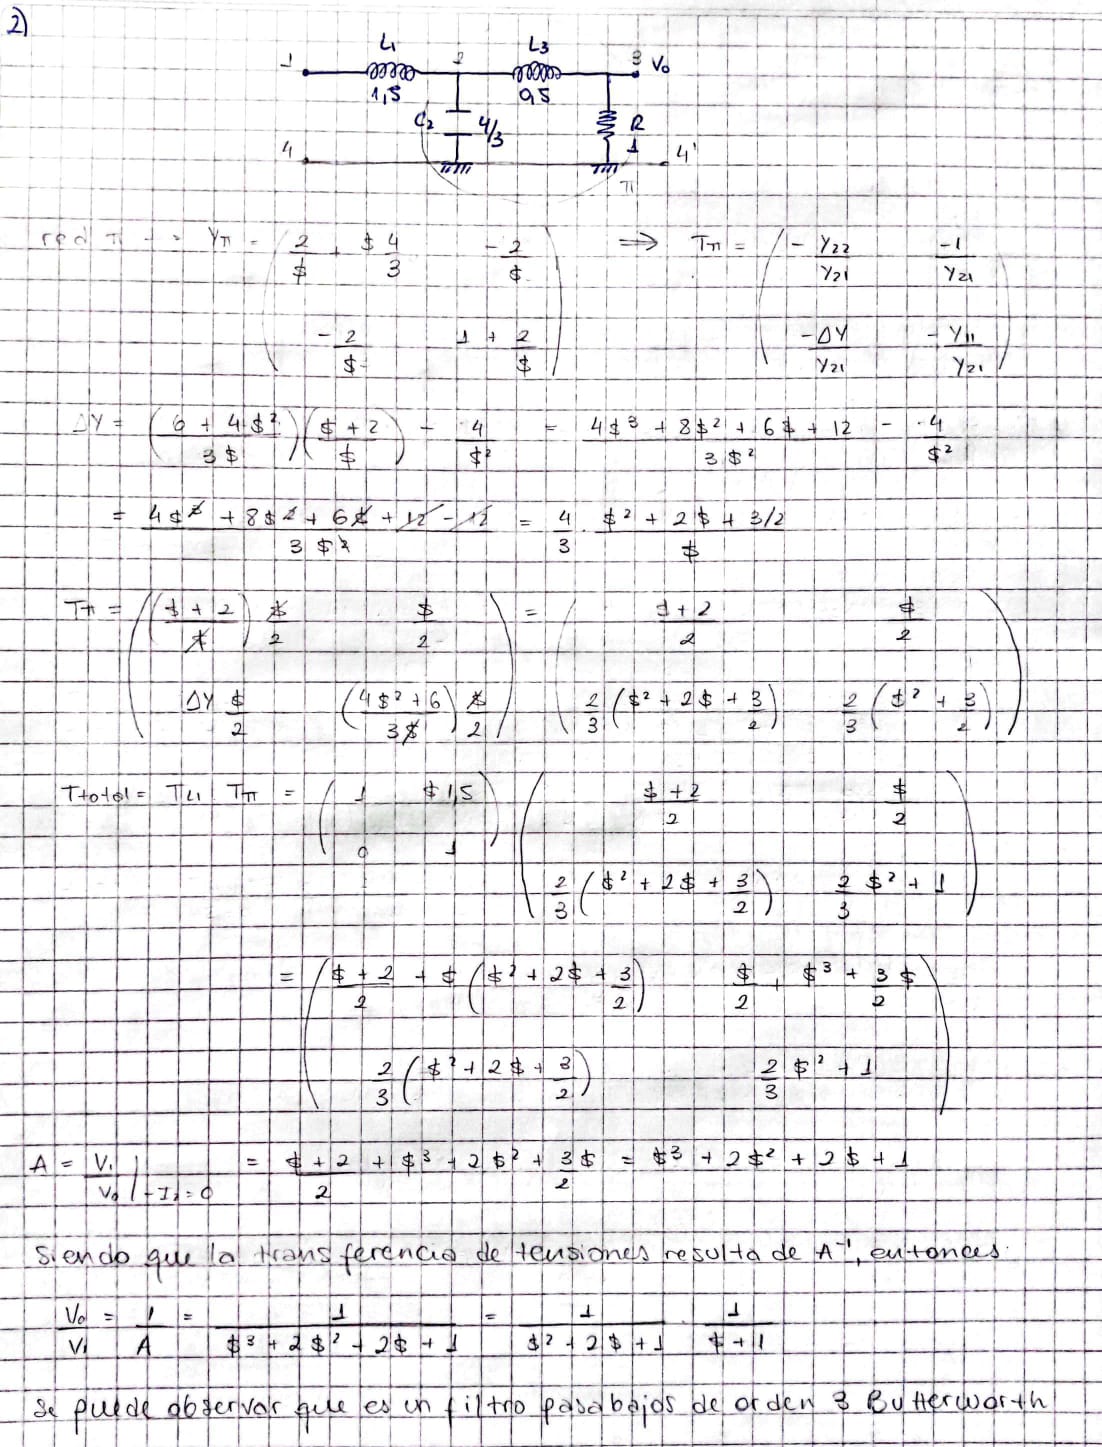 2)
L1 L3
1 2 3 Vo
1,5 0,5
C2 4/3 R 1
4 4'
π
red π -> Yπ = ( 2/$ + $ 4/3   -2/$ ; -2/$   1 + 2/$ ) => Tπ = ( -Y22/Y21   -1/Y21 ; -ΔY/Y21   -Y11/Y21 )
ΔY = ( (6 + 4$²)/(3$) ) ( ($ + 2)/$ ) - 4/$² = (4$³ + 8$² + 6$ + 12)/(3$²) - 4/$²
= (4$³ + 8$² + 6$ + 12 - 12)/(3$²) = 4/3 . ($² + 2$ + 3/2)/$
Tπ = ( (($ + 2)/$) $/2   $/2 ; ΔY $/2   ((4$² + 6)/(3$)) $/2 ) = ( ($ + 2)/2   $/2 ; 2/3 ($² + 2$ + 3/2)   2/3 ($² + 3/2) )
Ttotal = TL1 Tπ = ( 1   $1,5 ; 0   1 ) ( ($ + 2)/2   $/2 ; 2/3 ($² + 2$ + 3/2)   2/3 $² + 1 )
= ( ($ + 2)/2 + $ ($² + 2$ + 3/2)   $/2 + $³ + 3/2 $ ; 2/3 ($² + 2$ + 3/2)   2/3 $² + 1 )
A = V1/Vo |-I2=0 = ($ + 2)/2 + $³ + 2$² + 3/2 $ = $³ + 2$² + 2$ + 1
Siendo que la transferencia de tensiones resulta de A⁻¹, entonces:
Vo/V1 = 1/A = 1/($³ + 2$² + 2$ + 1) = 1/($² + 2$ + 1) . 1/($ + 1)
se puede observar que es un filtro pasabajos de orden 3 Butterworth